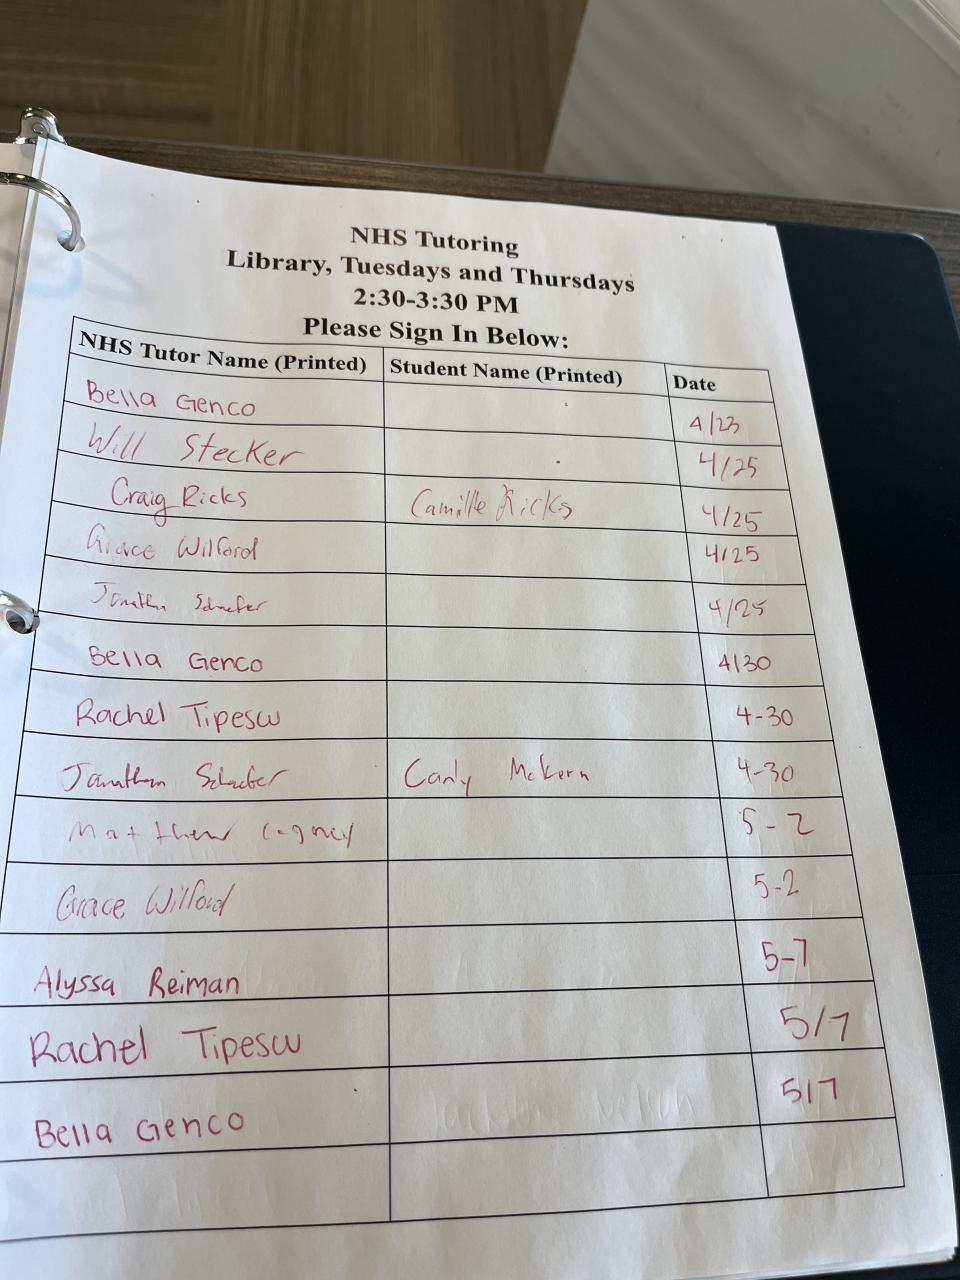 NHS Tutoring
Library, Tuesdays and Thursdays
2:30-3:30 PM
Please Sign In Below:
NHS Tutor Name (Printed) Student Name (Printed) Date
Bella Genco 4/23
Will Stecker 4/25
Craig Ricks Camille Ricks 4/25
Grace Wilford 4/25
Jonathan Schaefer 4/25
Bella Genco 4/30
Rachel Tipescu 4-30
Jonathan Schaefer Carly McKern 4-30
Matthew Cagney 5-2
Grace Wilford 5-2
Alyssa Reiman 5-7
Rachel Tipescu 5/7
Bella Genco 5/7